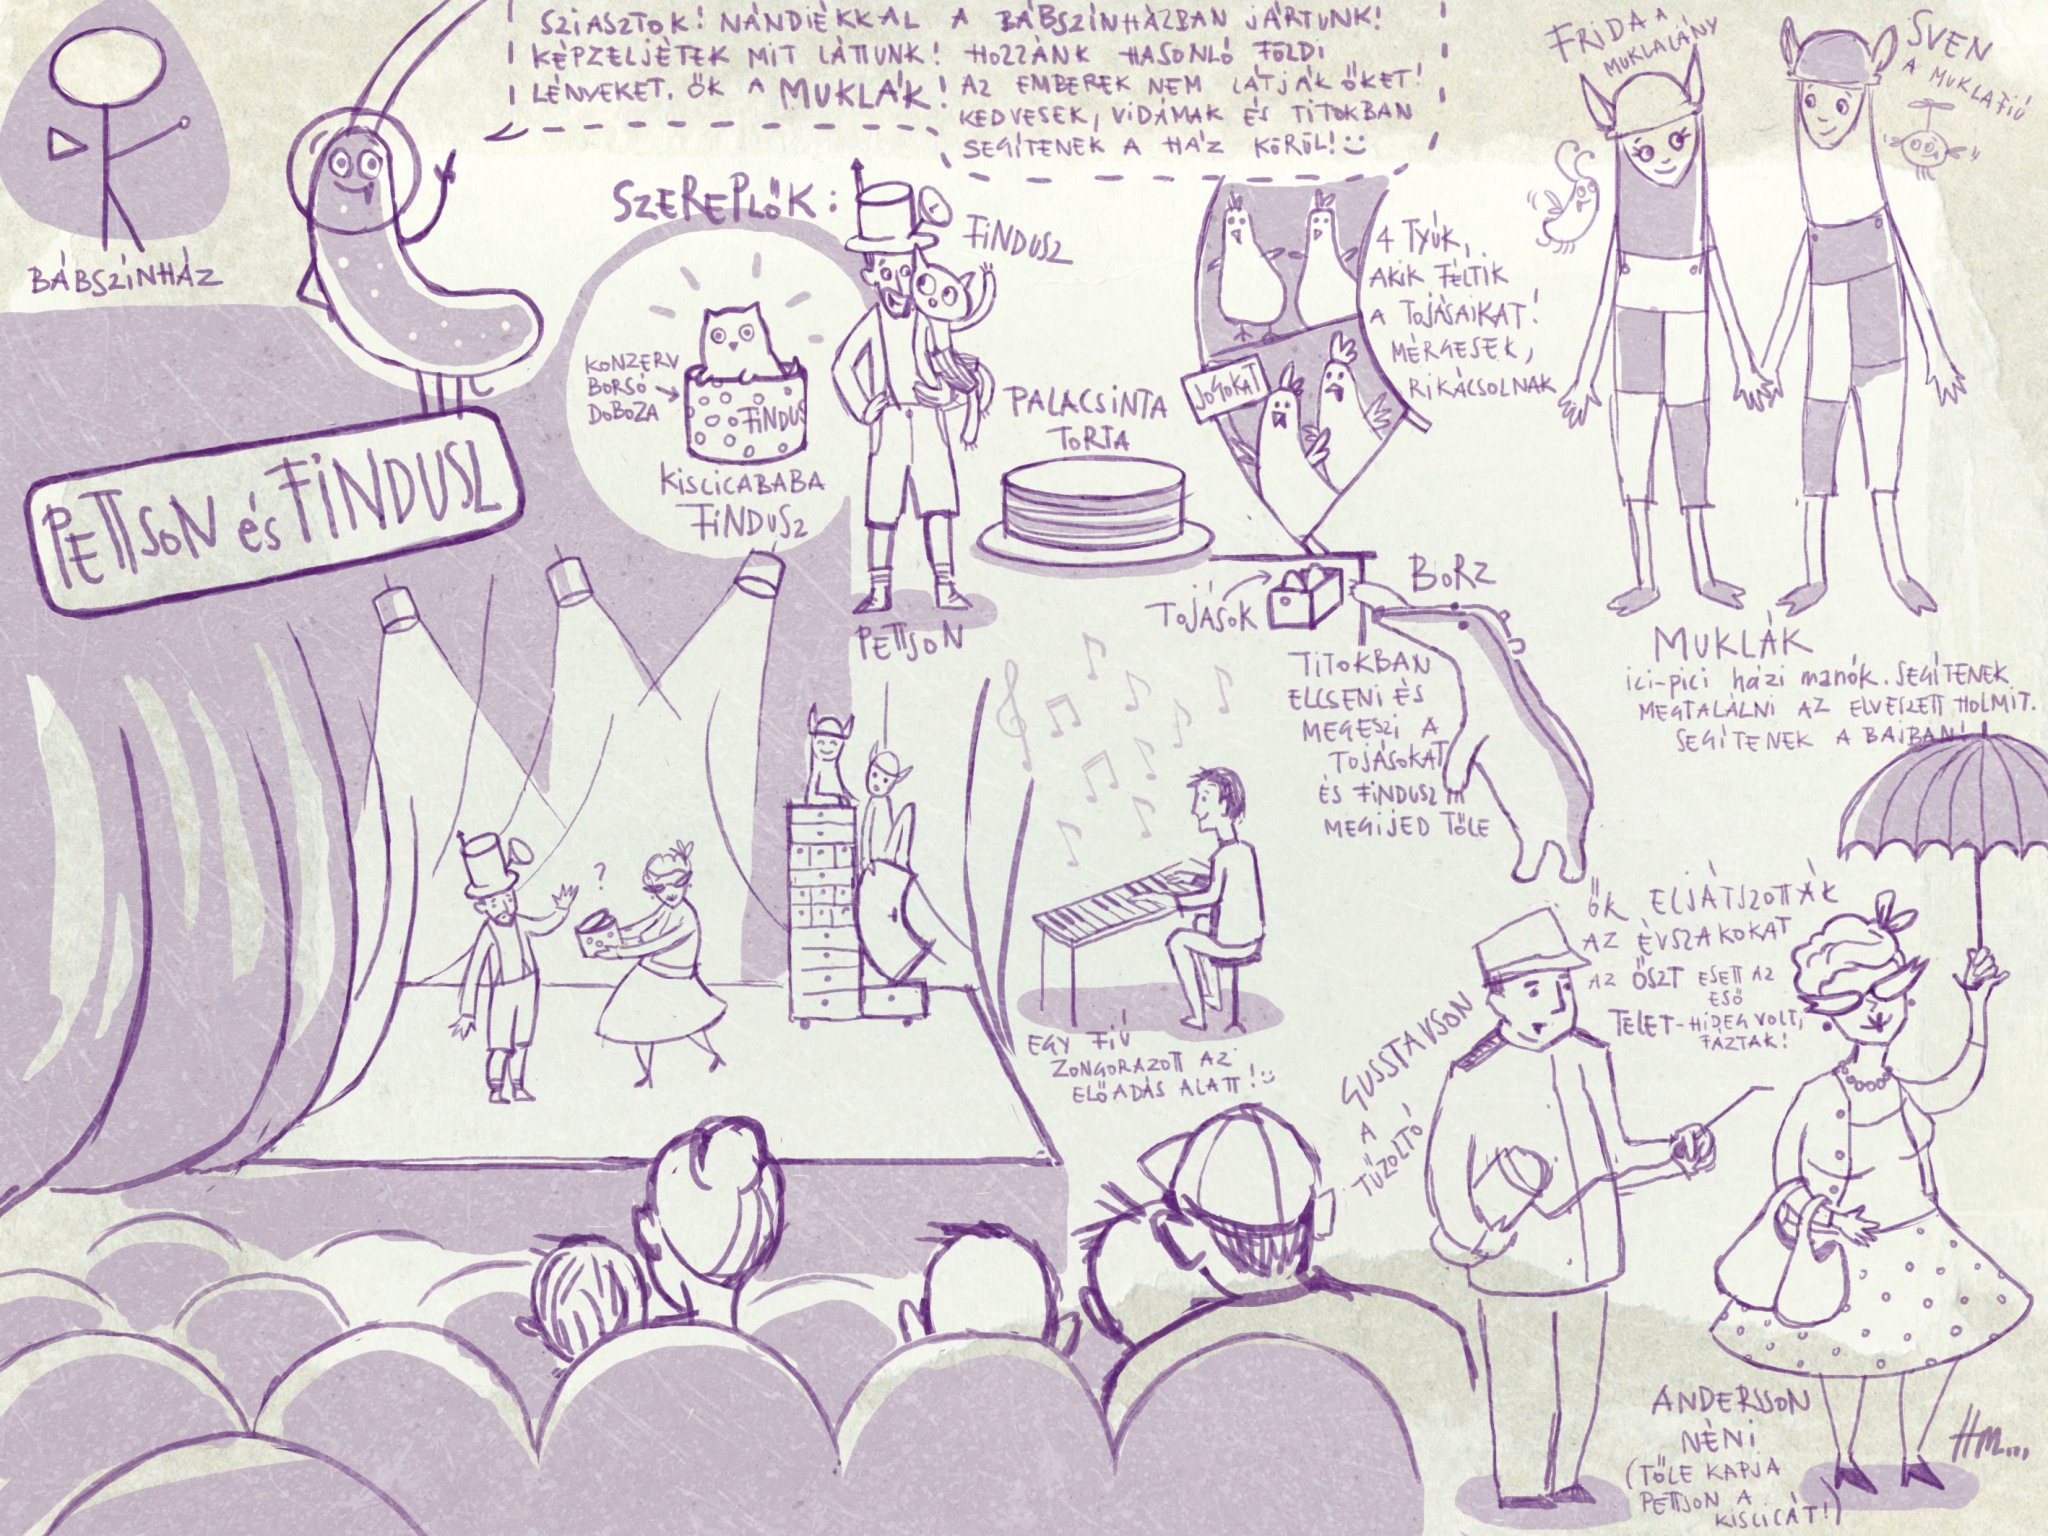 SZIASZTOK! NÁNDIÉKKAL A BÁBSZÍNHÁZBAN JÁRTUNK!
KÉPZELJÉTEK MIT LÁTTUNK! HOZZÁNK HASONLÓ FÖLDI
LÉNYEKET. ŐK A MUKLÁK! AZ EMBEREK NEM LÁTJÁK ŐKET!
KEDVESEK, VIDÁMAK ÉS TITOKBAN
SEGÍTENEK A HÁZ KÖRÜL! :)
BÁBSZÍNHÁZ
PETTSON és FINDUSZ
SZEREPLŐK:
KONZERV
BORSÓ
DOBOZA
FINDUS
KISCICABABA
FINDUSZ
FINDUSZ
PETTSON
PALACSINTA
TORTA
JOGOKAT
4 TYÚK,
AKIK FÉLTIK
A TOJÁSAIKAT!
MÉRGESEK,
RIKÁCSOLNAK
FRIDA A
MUKLALÁNY
SVEN
A MUKLAFIÚ
MUKLÁK
ici-pici házi manók. SEGÍTENEK
MEGTALÁLNI AZ ELVESZETT HOLMIT.
SEGÍTENEK A BAJBAN!
TOJÁSOK
BORZ
TITOKBAN
ELCSENI ÉS
MEGESZI A
TOJÁSOKAT
ÉS FINDUSZ
MEGIJED TŐLE
?
EGY FIÚ
ZONGORAZOTT AZ
ELŐADÁS ALATT! :)
ŐK ELJÁTSZOTTÁK
AZ ÉVSZAKOKAT
AZ ŐSZT ESETT AZ
ESŐ
TELET-HIDEG VOLT,
FÁZTAK!
GUSSTAVSON
A
TŰZOLTÓ
ANDERSSON
NÉNI
(TŐLE KAPJA
PETTSON A
KISCICÁT!)
HM...